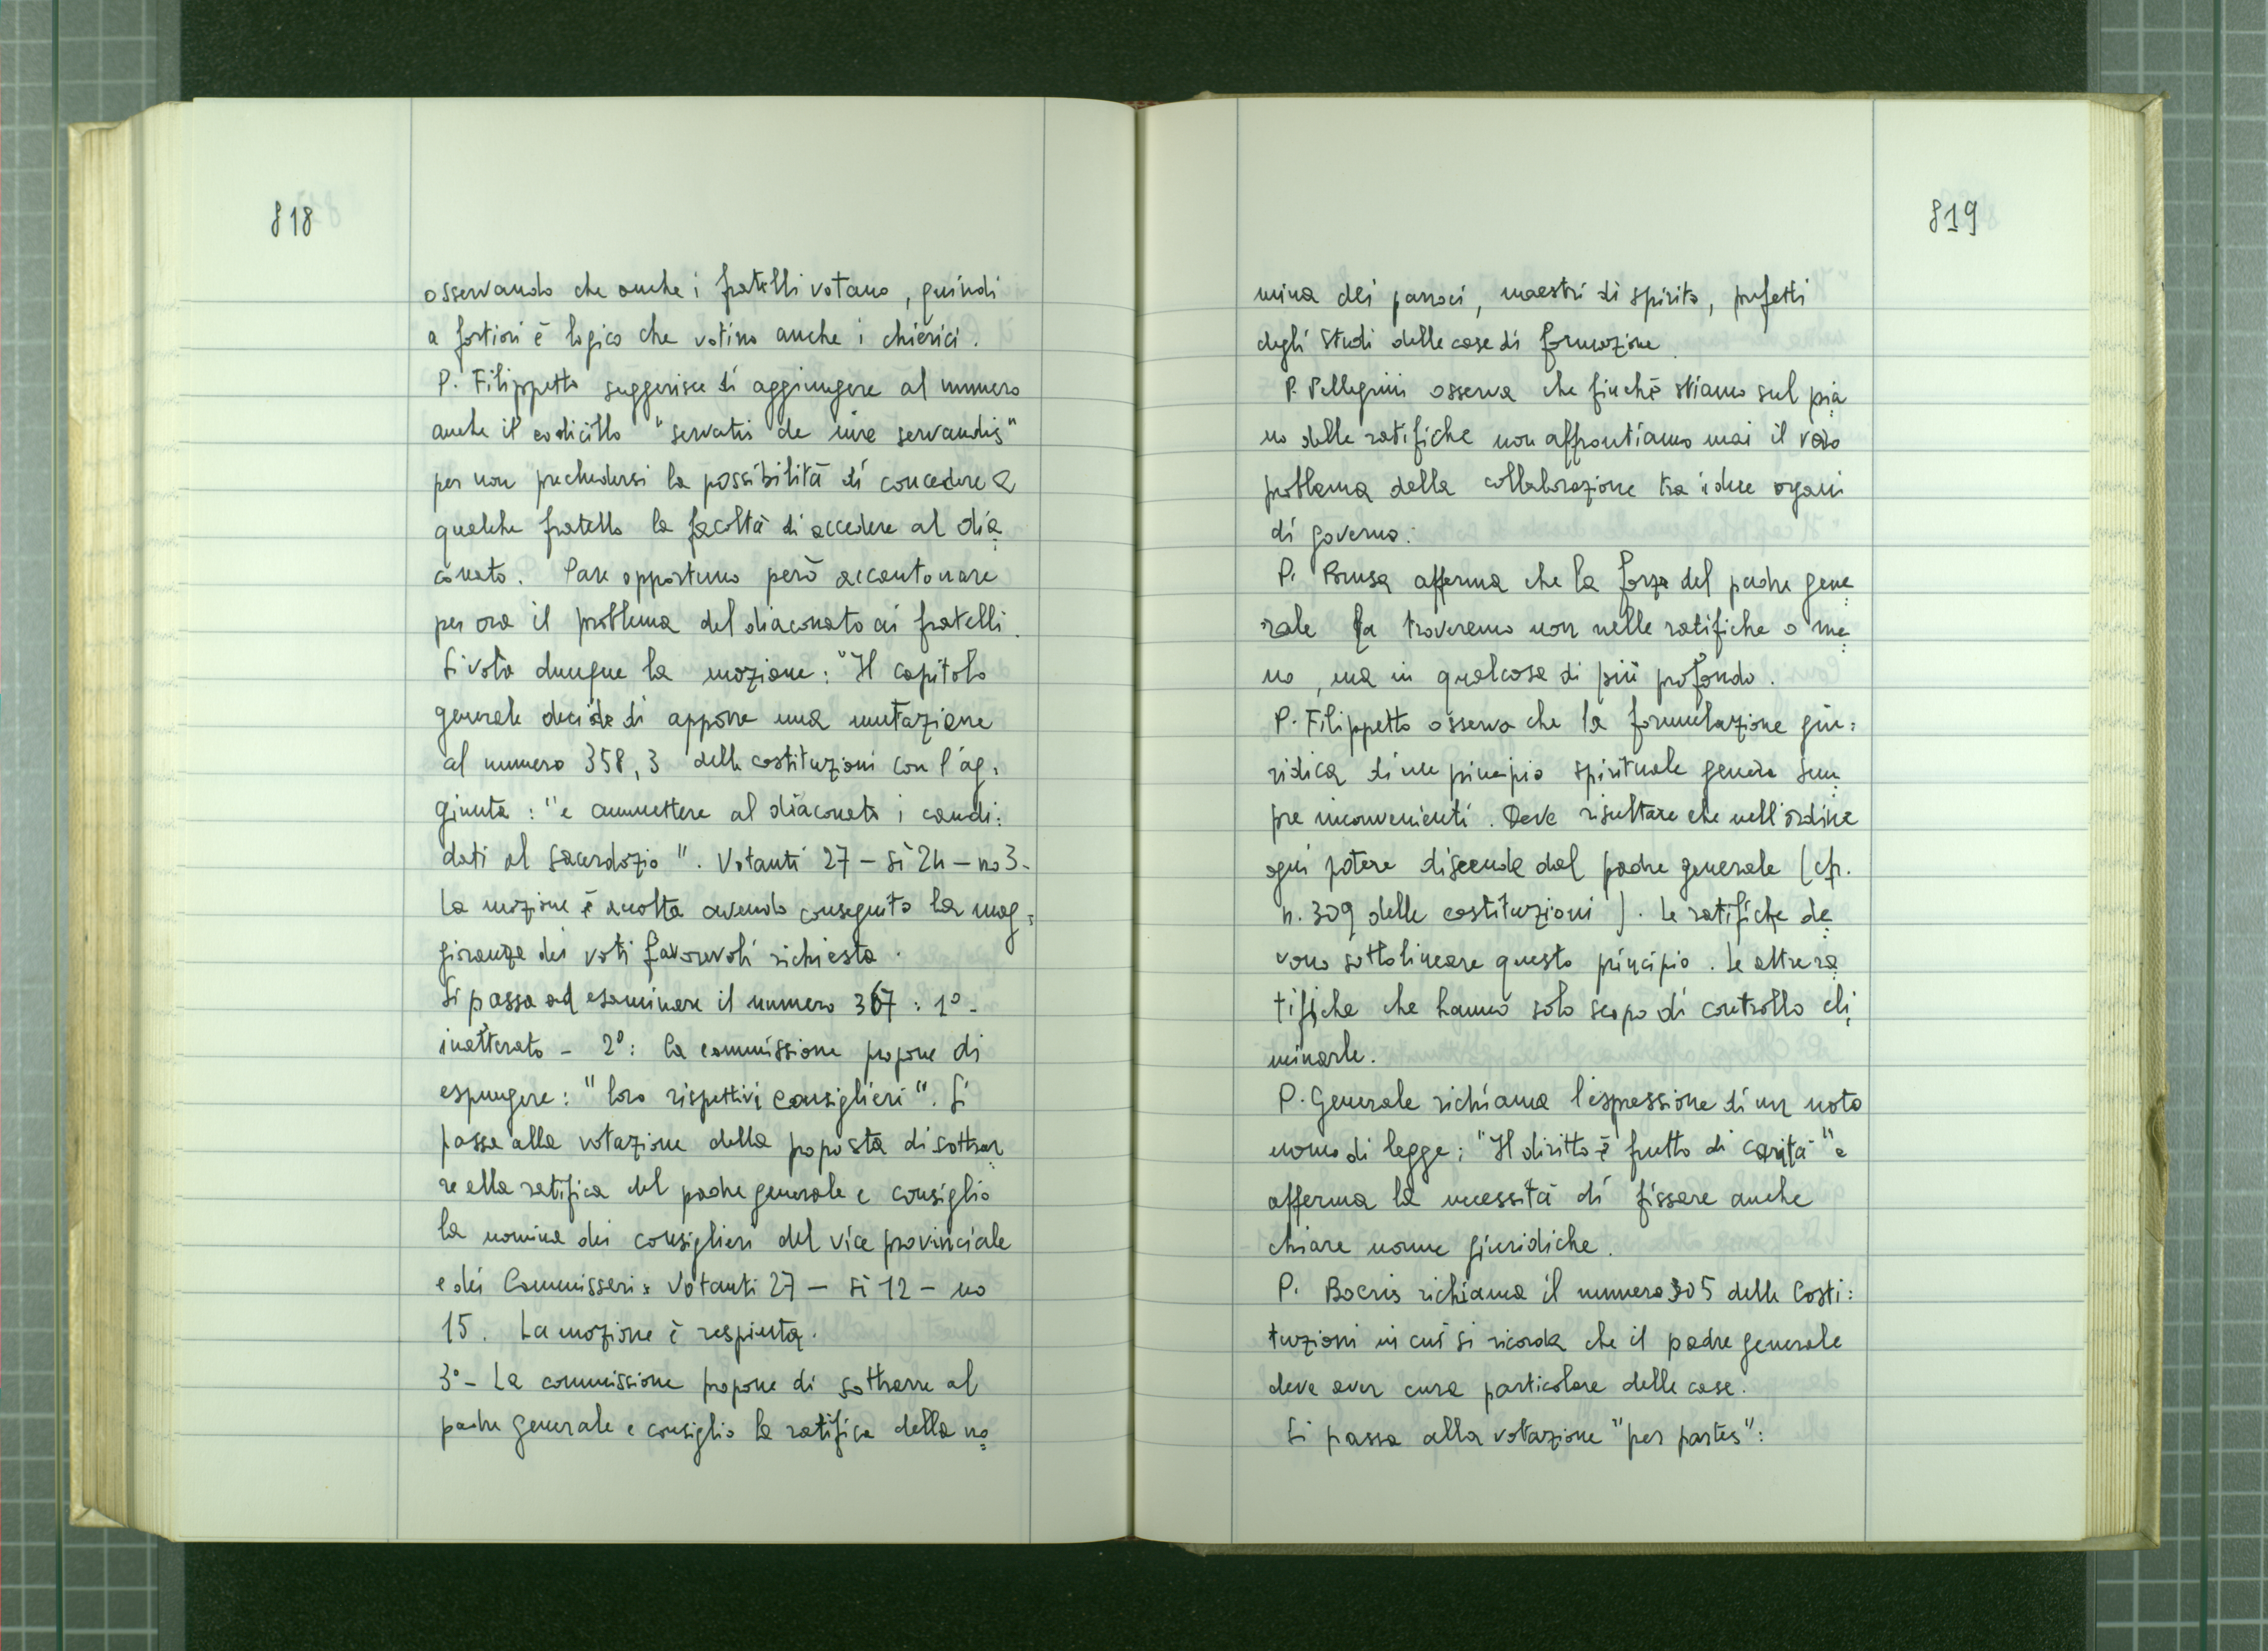 818
osservando che anche i fratelli votano, quindi
a fortiori è logico che votino anche i chierici.
P. Filippetto suggerisce di aggiungere al numero
anche il codicillo "servatis de iure servandis"
per non precludersi la possibilità di concedere a
qualche fratello la facoltà di accedere al dia
conato. Pare opportuno però accantonare
per ora il problema del diaconato ai fratelli.
Si vota dunque la mozione: "Il capitolo
generale decide di apporre una mutazione
al numero 358,3 delle costituzioni con l'ag=
giunta: "e ammettere al diaconato i candi=
dati al sacerdozio". Votanti 27 - sì 24 - no 3-
La mozione è accolta avendo conseguito la mag=
gioranza dei voti favorevoli richiesta.
Si passa ad esaminare il numero 367: 1° -
inalterato - 2°: la commissione propone di
espungere: "loro rispettivi consiglieri". Si
passa alla votazione della proposta di sottrar
re alla ratifica del padre generale e consiglio
la nomina dei consiglieri del vice provinciale
e dei Commissari: Votanti 27 - sì 12 - no
15. La mozione è respinta.
3° - La commissione propone di sottrarre al
padre generale e consiglio la ratifica della no
819
mina dei parroci, maestri di spirito, prefetti
degli studi delle case di formazione.
P. Pellegrini osserva che finchè stiamo sul pia
no delle ratifiche non affrontiamo mai il vero
problema della collaborazione tra i due organi
di governo.
P. Brusa afferma che la forza del padre gene
rale la troveremo non nelle ratifiche o me
no, ma in qualcosa di più profondo.
P. Filippetto osserva che la formulazione giu=
ridica di un principio spirituale genera sem
pre inconvenienti. Deve risultare che nell'ordine
ogni potere discende dal padre generale (cfr.
n. 309 delle costituzioni). Le ratifiche de
vono sottolineare questo principio. Le altre ra
tifiche che hanno solo scopo di controllo eli
minarle.
P. Generale richiama l'espressione di un noto
uomo di legge: "Il diritto è frutto di carità" e
afferma la necessità di fissare anche
chiare norme giuridiche.
P. Boeris richiama il numero 305 delle Costi=
tuzioni in cui si ricorda che il padre generale
deve aver cura particolare delle case.
Si passa alla votazione "per partes":